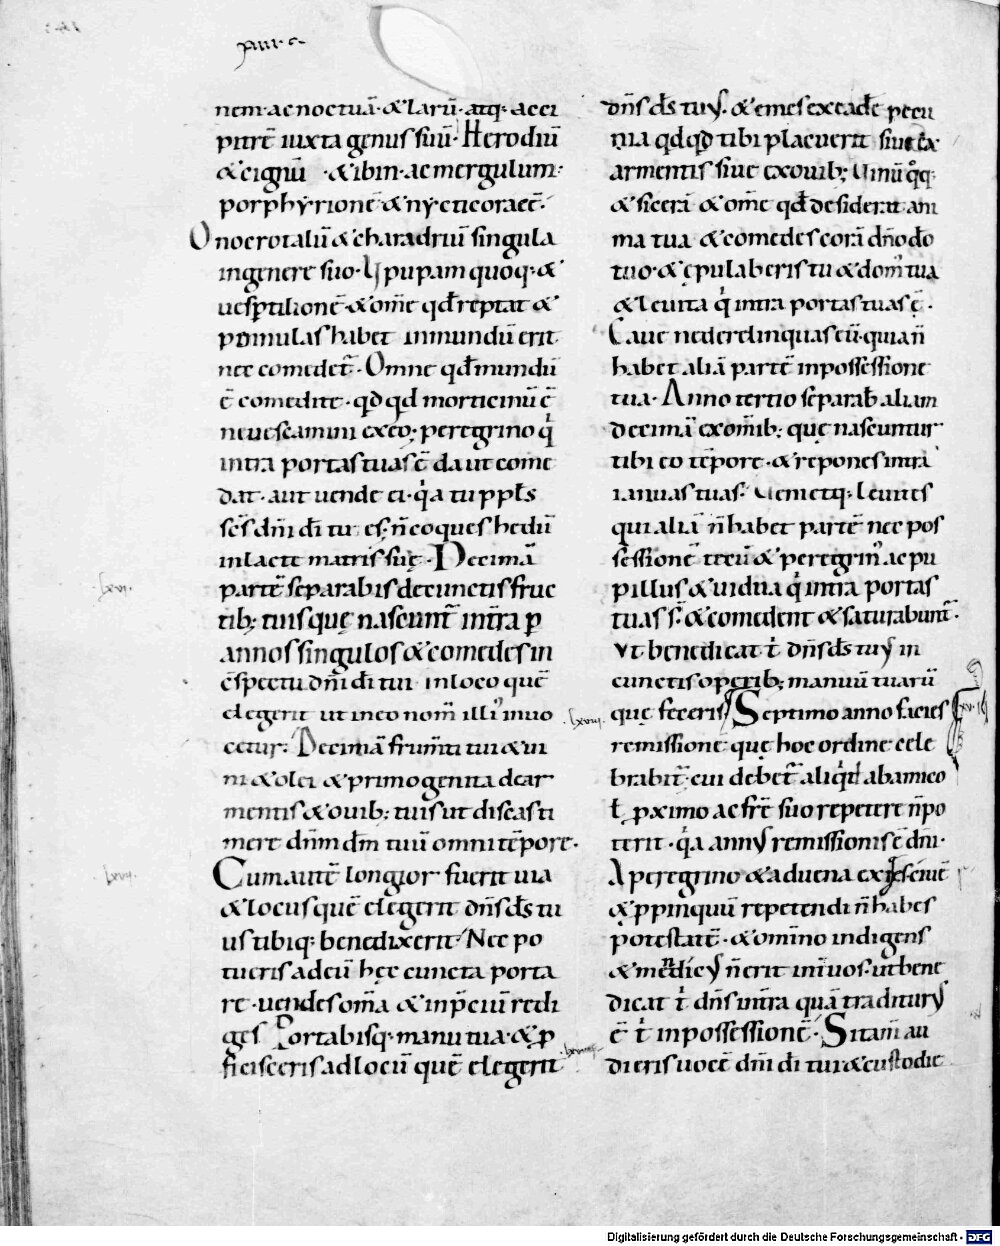 nem· ac noctuā· & larū· atq; acci
pitrē iuxta genus suū· Herodiū
& cignū · & ibin· ac mergulum·
porphyrionē & nycticoracē·
Onocrotaliū & charadriū singula
in genere suo· Upupam quoq· &
uesptilionē· & om̄e qđ reptat &
pinnulas habet inmundū erit
nec comedet᷑· Omne qđ mundū
ē comedite· qđ qđ morticinū ē
ne uescamini ex eo; peregrino q̇
intra portas tuas ē da ut come
dat· aut uende ei· q̇a tu pp̄ls
sc̄s dn̄i di tui es· n̄ coques hedū
in lacte matris suę· Decimā
partē separabis de cunctis fruc
tib; tuis que nascunt᷑ in t̄ra p
annos singulos & comedes in
c̄spectu dn̄i di tui in loco quē
elegerit ut in eo nom̄ illiʼ inuo
cetur· Decimā frum̄ti tui & ui
ni & olei & primogenita de ar
mentis & ouib; tuis ut discas ti
mere dn̄m dm̄ tuū omni tēpore·
Cum autē longior fuerit uia
& locus quē elegerit dn̄s ds tu
us tibiq; benedixerit· Nec po
tueris ad eū hęc cuncta porta
re· uendes om̄a & in p̄ciū redi
ges Portabisq· manu tua· & p
ficisceris ad locū quē elegerit
dn̄s ds tuus· & emes ex eadē pecu
nia qđ qđ tibi placuerit siue ex
armentis siue ex ouib; Uinū q̊q·
& sicerā & om̄e qđ desiderat ani
ma tua & comedes corā dn̄o do
tuo· & epulaberis tu & domʼ tua
& leuita q̇ intra portas tuas ē·
Caue ne derelinquas eū· quia n̄
habet aliā partē in possessione
tua· Anno tertio separab̄ aliam
decimā ex om̄ib; quę nascuntur
tibi eo tēpore· & repones intra
ianuas tuas· Uenietq; leuites
qui aliā n̄ habet partē nec pos
sessionē tecū & peregrinʼ ac pu
pillus & uidua q̇ intra portas
tuas s̄· & comedent & saturabunt᷑·
Ut benedicat ṫ dn̄s ds tuus in
cunctis operib; manuū tuarū
quę feceris Septimo anno facies
remissionē quę hoc ordine cele
brabit᷑· cui debet᷑ aliq̇d ab amico
ł pximo ac fr̄e suo repetere n̄ po
terit· q̇a annus remissionis ē dn̄i·
A peregrino & aduena exiges
& ppinquū repetendi n̄ habes
potestatē· & omīno indigens
& mendicus n̄ erit int̄ uos· ut bene
dicat ṫ dn̄s in t̄ra quā traditurus
ē ṫ in possessionē· Si tam̄ au
dieris uocē dn̄i di tui & custodie
lxvi·
lxvii·
lxviii·